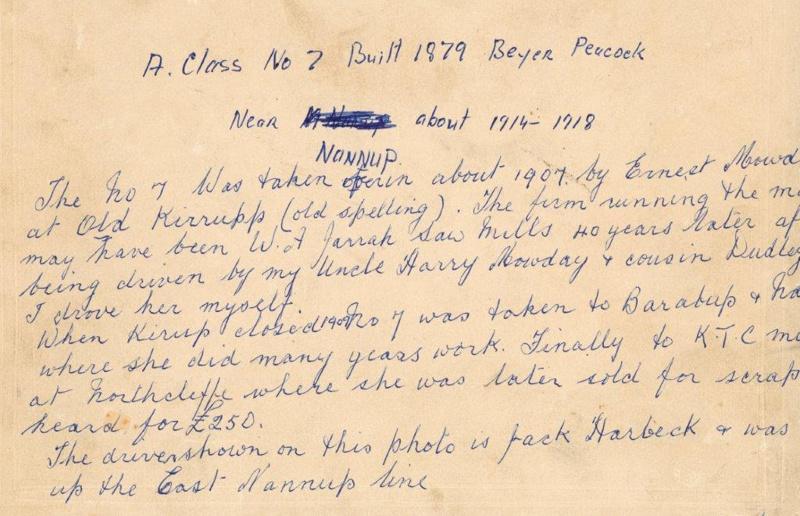 A. Class No 7 Built 1879 Beyer Peacock
Near about 1914-1918
Nannup.
The No 7 Was taken in about 1907 by Ernest Mowd
at Old Kirrupp (old spelling). The firm running the m
may have been W.A Jarrah Saw Mills 40 years later af
being driven by my Uncle Harry Mowday & cousin Dudley
I drove her myself.
When Kirup closed 1909 No 7 was taken to Barabup & Na
where she did many years work. Finally to K.T.C m
at Northcliffe where she was later sold for scrap
heard for £250.
The driver shown on this photo is Jack Harbeck & was
up the East Nannup line